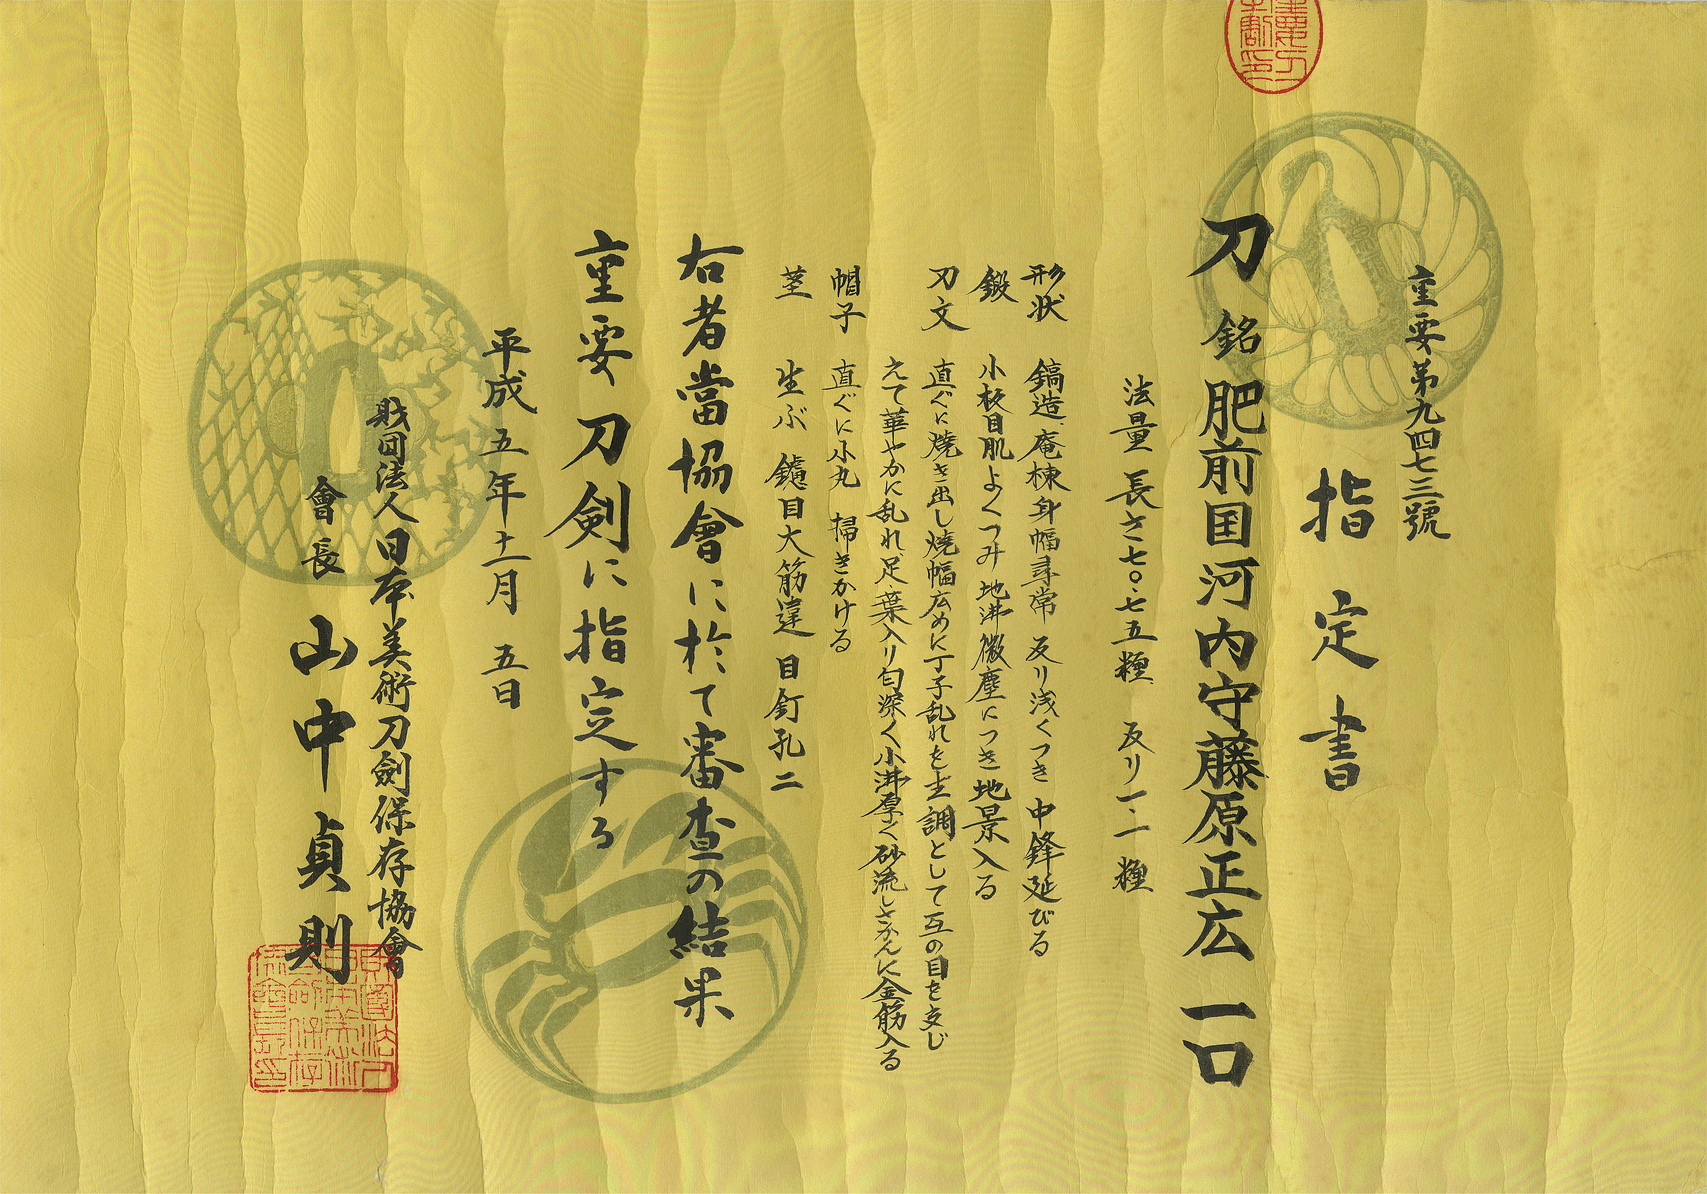 重要第九四七三號
指定書
刀 銘 肥前国河内守藤原正広 一口
法量 長さ七〇・七五糎 反り一・一糎
形状 鎬造 庵棟 身幅尋常 反り浅くつき 中鋒延びる
鍛 小板目肌よくつみ 地沸微塵につき 地景入る
刃文 直ぐに焼き出し焼幅広めに丁子乱れを主調として互の目を交じ
えて華やかに乱れ 足・葉入り匂深く小沸厚く砂流しさかんに金筋入る
帽子 直ぐに小丸 掃きかける
茎 生ぶ 鑢目大筋違 目釘孔二
右者當協會に於て審査の結果
重要刀剣に指定する
平成五年十一月五日
財団法人日本美術刀劍保存協會
會長 山中貞則